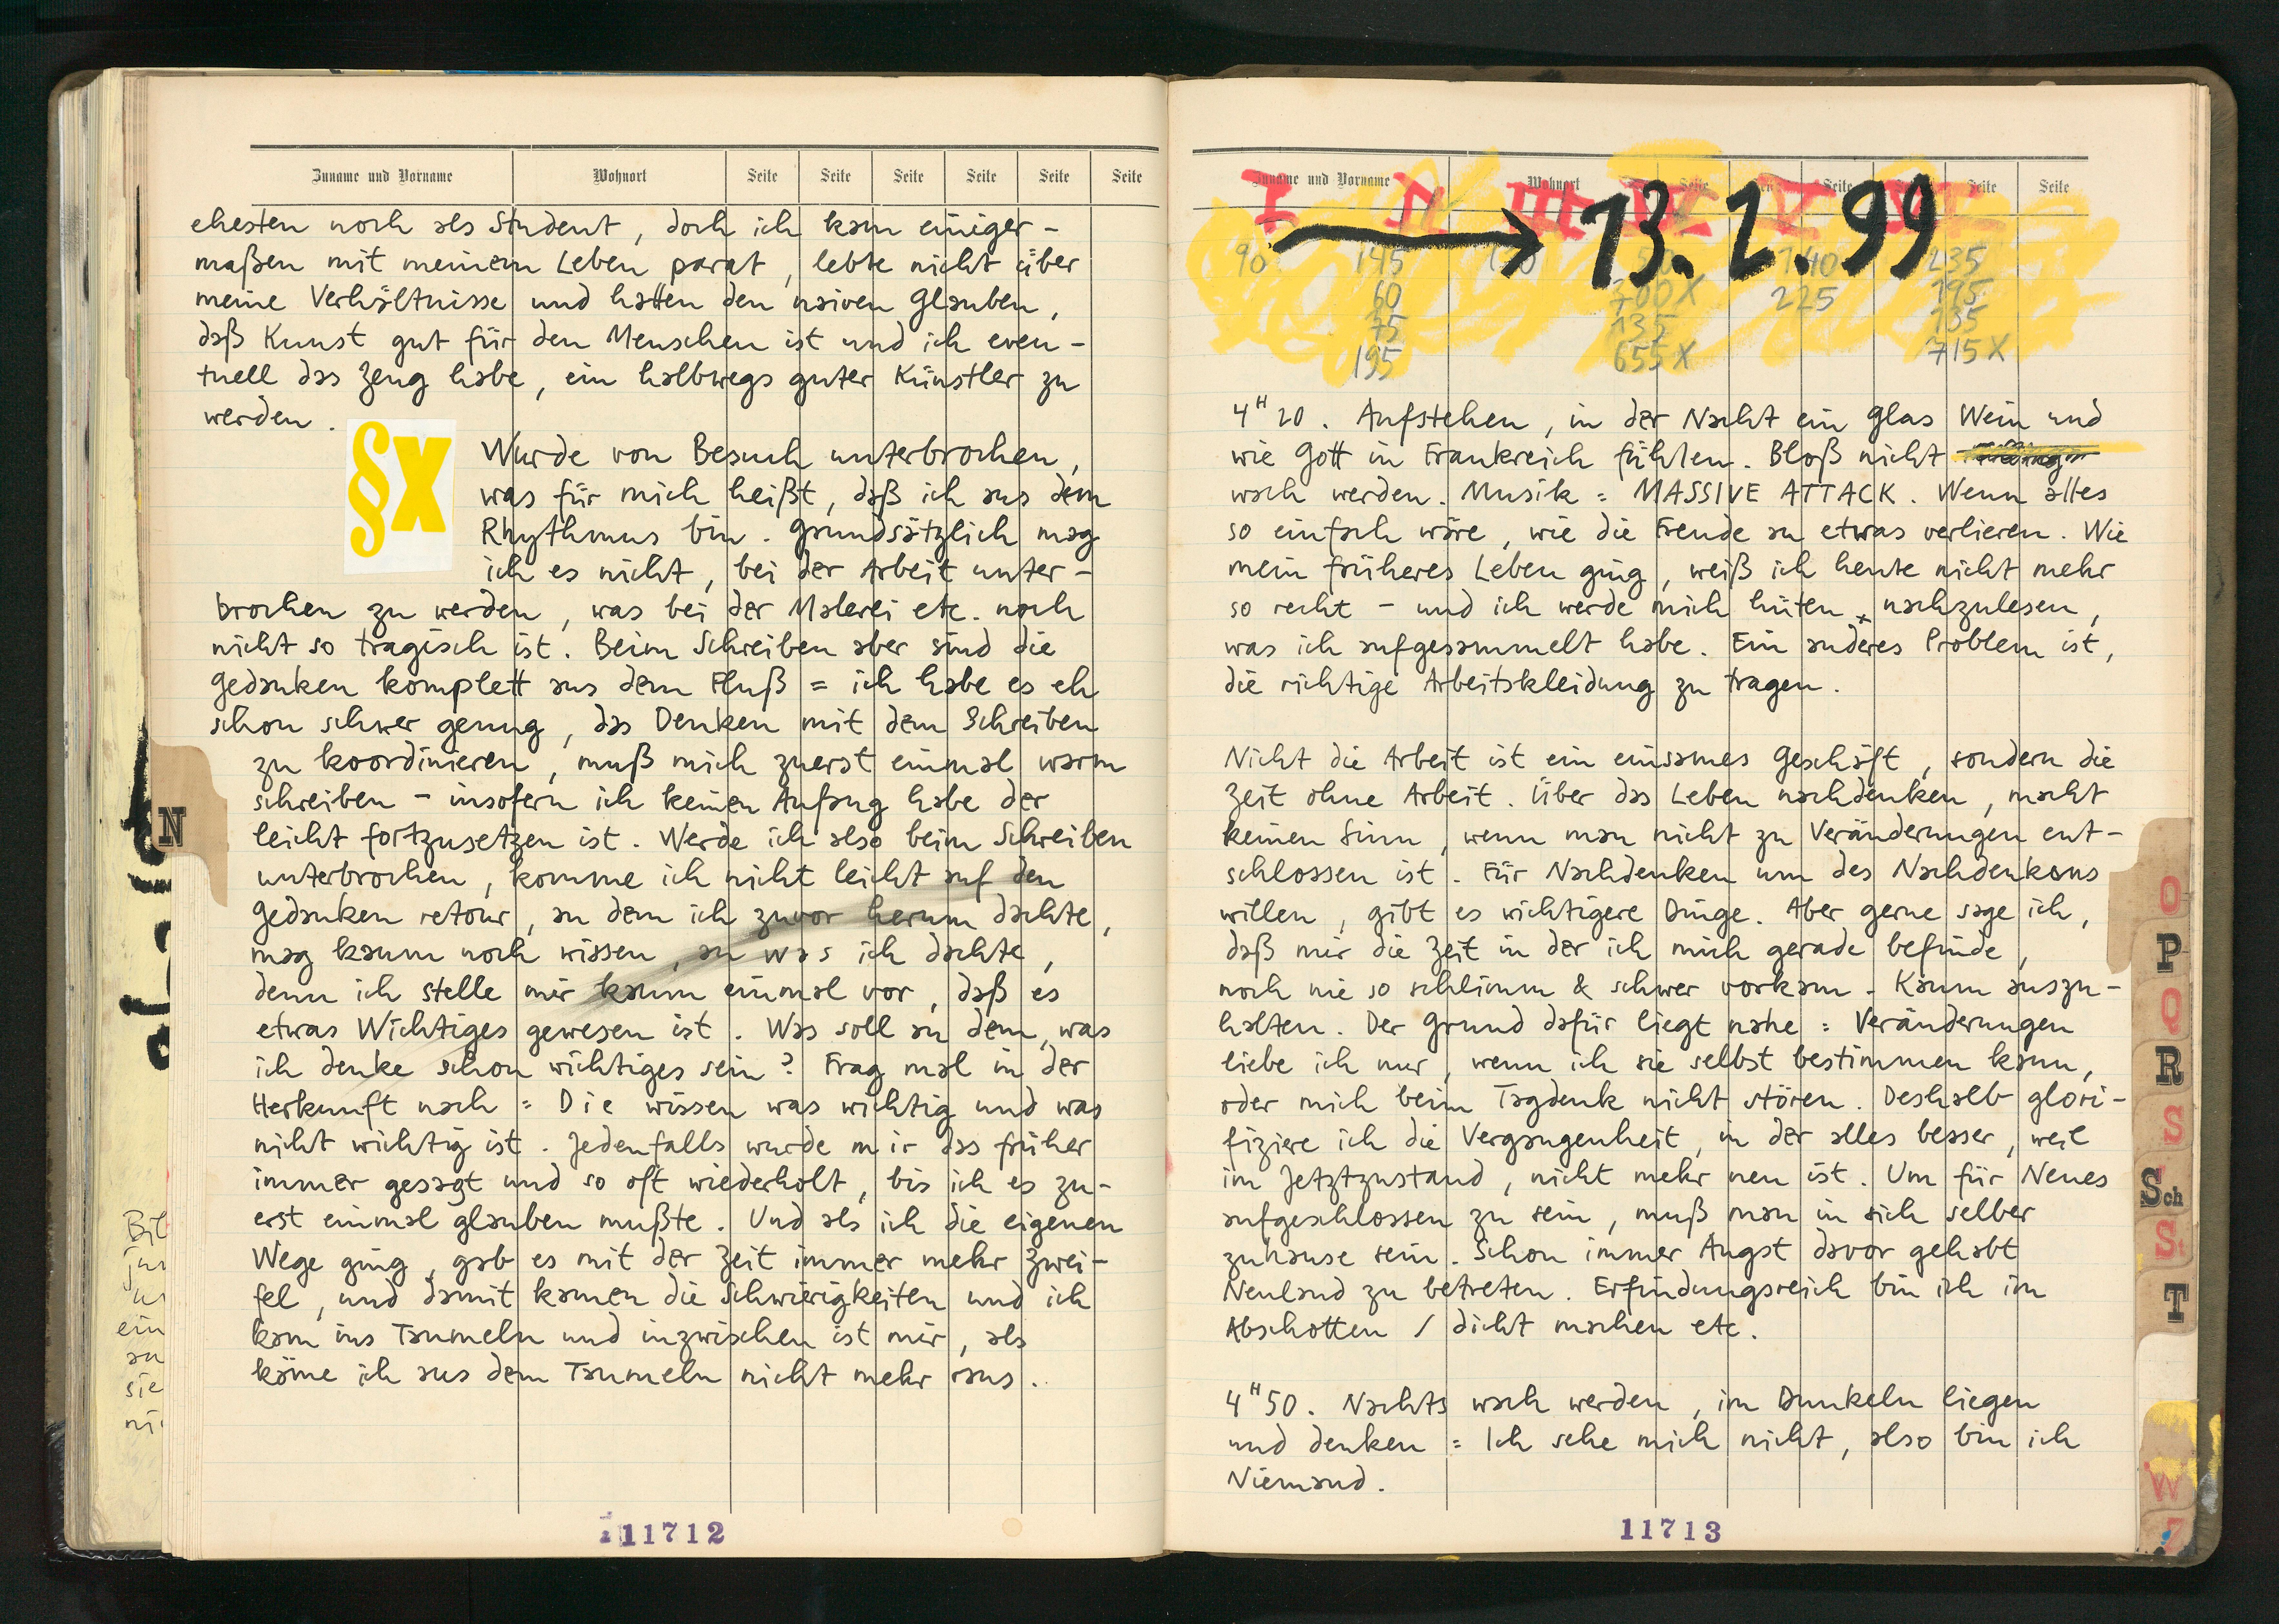 Zuname und Vorname Wohnort Seite Seite Seite Seite Seite Seite
ehesten noch als Student, doch ich kam einiger-
maßen mit meinem Leben parat, lebte nicht über
meine Verhältnisse und hatten den naiven Glauben,
daß Kunst gut für den Menschen ist und ich even-
tuell das Zeug habe, ein halbwegs guter Künstler zu
werden.
§X
Wurde von Besuch unterbrochen,
was für mich heißt, daß ich aus dem
Rhythmus bin. Grundsätzlich mag
ich es nicht, bei der Arbeit unter-
brochen zu werden, was bei der Malerei etc. noch
nicht so tragisch ist. Beim Schreiben aber sind die
Gedanken komplett aus dem Fluß = ich habe es eh
schon schwer genug, das Denken mit dem Schreiben
zu koordinieren, muß mich zuerst einmal warm
schreiben - insofern ich keinen Anfang habe der
leicht fortzusetzen ist. Werde ich also beim Schreiben
unterbrochen, komme ich nicht leicht auf den
Gedanken retour, an dem ich zuvor herum dachte,
mag kaum noch wissen, an was ich dachte,
denn ich stelle mir kaum einmal vor, daß es
etwas Wichtiges gewesen ist. Was soll an dem, was
ich denke schon wichtiges sein? Frag mal in der
Herkunft nach = Die wissen was wichtig und was
nicht wichtig ist. Jedenfalls wurde mir das früher
immer gesagt und so oft wiederholt, bis ich es zu-
erst einmal glauben mußte. Und als ich die eigenen
Wege ging, gab es mit der Zeit immer mehr Zwei-
fel, und damit kamen die Schwierigkeiten und ich
kam ins Taumeln und inzwischen ist mir, als
käme ich aus dem Taumeln nicht mehr raus.
11712
N
Zuname und Vorname Wohnort Seite Seite Seite Seite
I II III V
13.2.99
90 145 140 235
60 700X 225 195
75 135 135
195 655X 715X
4H20. Aufstehen, in der Nacht ein Glas Wein und
wie Gott in Frankreich fühlen. Bloß nicht
wach werden. Musik = MASSIVE ATTACK. Wenn alles
so einfach wäre, wie die Freude an etwas verlieren. Wie
mein früheres Leben ging, weiß ich heute nicht mehr
so recht - und ich werde mich hüten, nachzulesen,
was ich aufgesammelt habe. Ein anderes Problem ist,
die richtige Arbeitskleidung zu tragen.
Nicht die Arbeit ist ein einsames Geschäft, sondern die
Zeit ohne Arbeit. Über das Leben nachdenken, macht
keinen Sinn, wenn man nicht zu Veränderungen ent-
schlossen ist. Für Nachdenken um des Nachdenkens
willen, gibt es wichtigere Dinge. Aber gerne sage ich,
daß mir die Zeit in der ich mich gerade befinde,
noch nie so schlimm & schwer vorkam. Kaum auszu-
halten. Der Grund dafür liegt nahe = Veränderungen
liebe ich nur, wenn ich sie selbst bestimmen kann,
oder mich beim Tagdenk nicht stören. Deshalb glori-
fiziere ich die Vergangenheit, in der alles besser, weil
im Jetztzustand, nicht mehr neu ist. Um für Neues
aufgeschlossen zu sein, muß man in sich selber
zuhause sein. Schon immer Angst davor gehabt
Neuland zu betreten. Erfindungsreich bin ich im
Abschotten / dicht machen etc.
4H50. Nachts wach werden, im Dunkeln liegen
und denken = Ich sehe mich nicht, also bin ich
Niemand.
11713
O
P
Q
R
S
Sch
St
T
W
Z
Bil
ein
sie